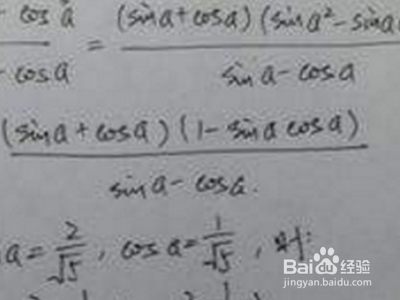 cos a / - cos a = (sin a + cos a) (sin a² - sin a / sin a - cos a
(sin a + cos a) (1 - sin a cos a) / sin a - cos a.
a = 2/√5, cos a = 1/√5, 时:
Bai 百度经验
jingyan.baidu.com